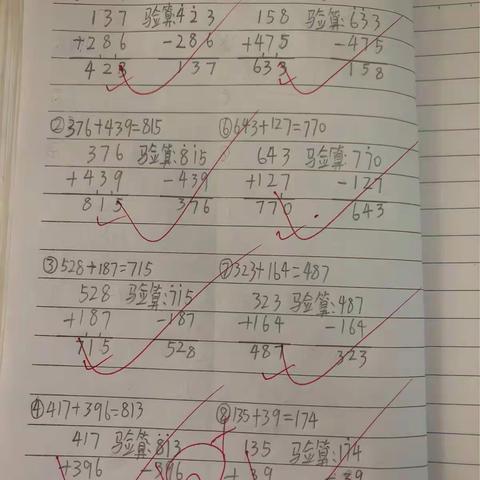 137 验算:423 158 验算:633
+286 -286 +475 -475
423 137 633 158
②376+439=815 ⑥643+127=770
376 验算:815 643 验算:770
+439 -439 +127 -127
815 376 770 643
③528+187=715 ⑦323+164=487
528 验算:715 323 验算:487
+187 -187 +164 -164
715 528 487 323
④417+396=813 ⑧135+39=174
417 验算:813 135 验算:174
+396 -396 +39 -39